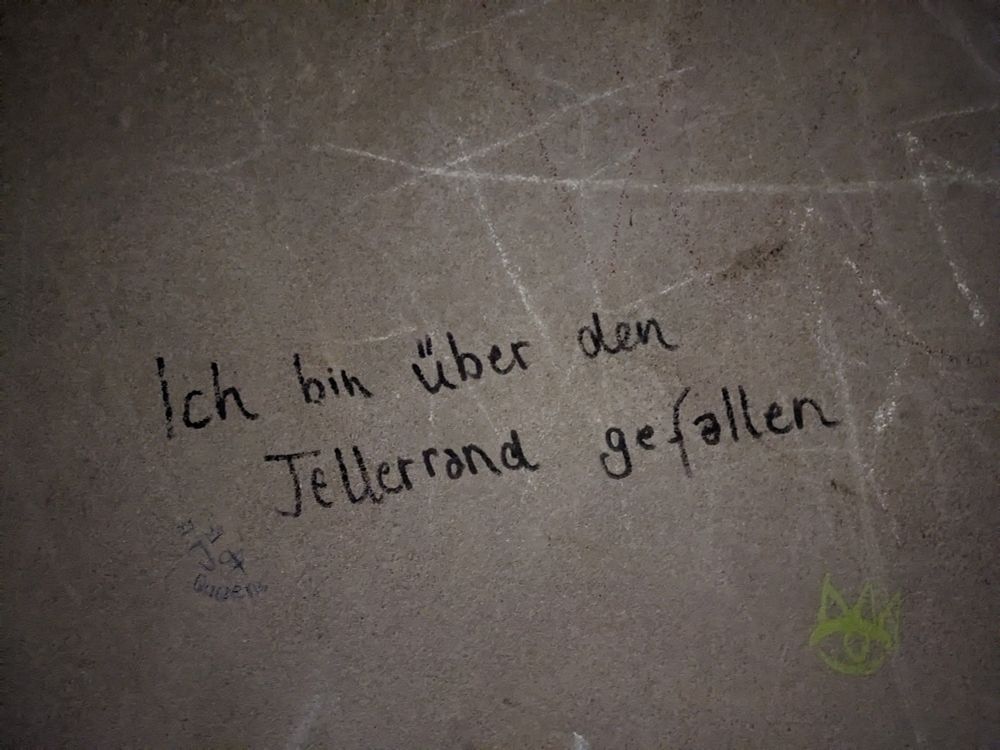 Ich bin über den
Tellerrand gefallen